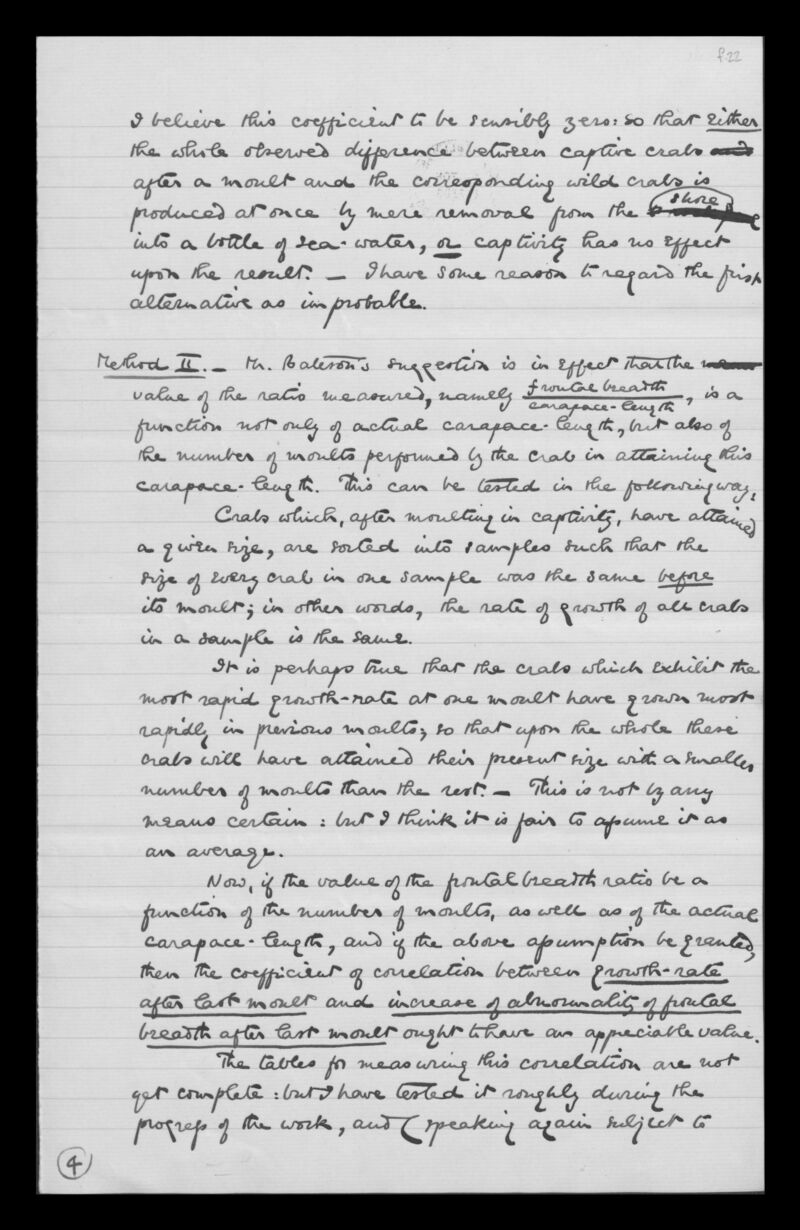 f.22
I believe this coefficient to be sensibly zero: so that either
the whole observed difference between captive crabs and
after a moult and the corresponding wild crabs is
produced at once by mere removal from the shore
into a bottle of sea-water, or captivity has no effect
upon the result. — I have some reason to regard the first
alternative as improbable.
Method II. — Mr. Bateson's suggestion is in effect that the
value of the ratio measured, namely frontal breadth / carapace-length, is a
function not only of actual carapace-length, but also of
the number of moults performed by the crab in attaining this
carapace-length. This can be tested in the following way:
Crabs which, after moulting in captivity, have attained
a given size, are sorted into samples such that the
size of every crab in one sample was the same before
its moult; in other words, the rate of growth of all crabs
in a sample is the same.
It is perhaps true that the crabs which exhibit the
most rapid growth-rate at one moult have grown most
rapidly in previous moults; so that upon the whole these
crabs will have attained their present size with a smaller
number of moults than the rest. — This is not by any
means certain: but I think it is fair to assume it as
an average.
Now, if the value of the frontal breadth ratio be a
function of the number of moults, as well as of the actual
carapace-length, and if the above assumption be granted,
then the coefficient of correlation between growth-rate
after last moult and increase of abnormality of frontal
breadth after last moult ought to have an appreciable value.
The tables for measuring this correlation are not
yet complete: but I have tested it roughly during the
progress of the work, and (speaking again subject to
4